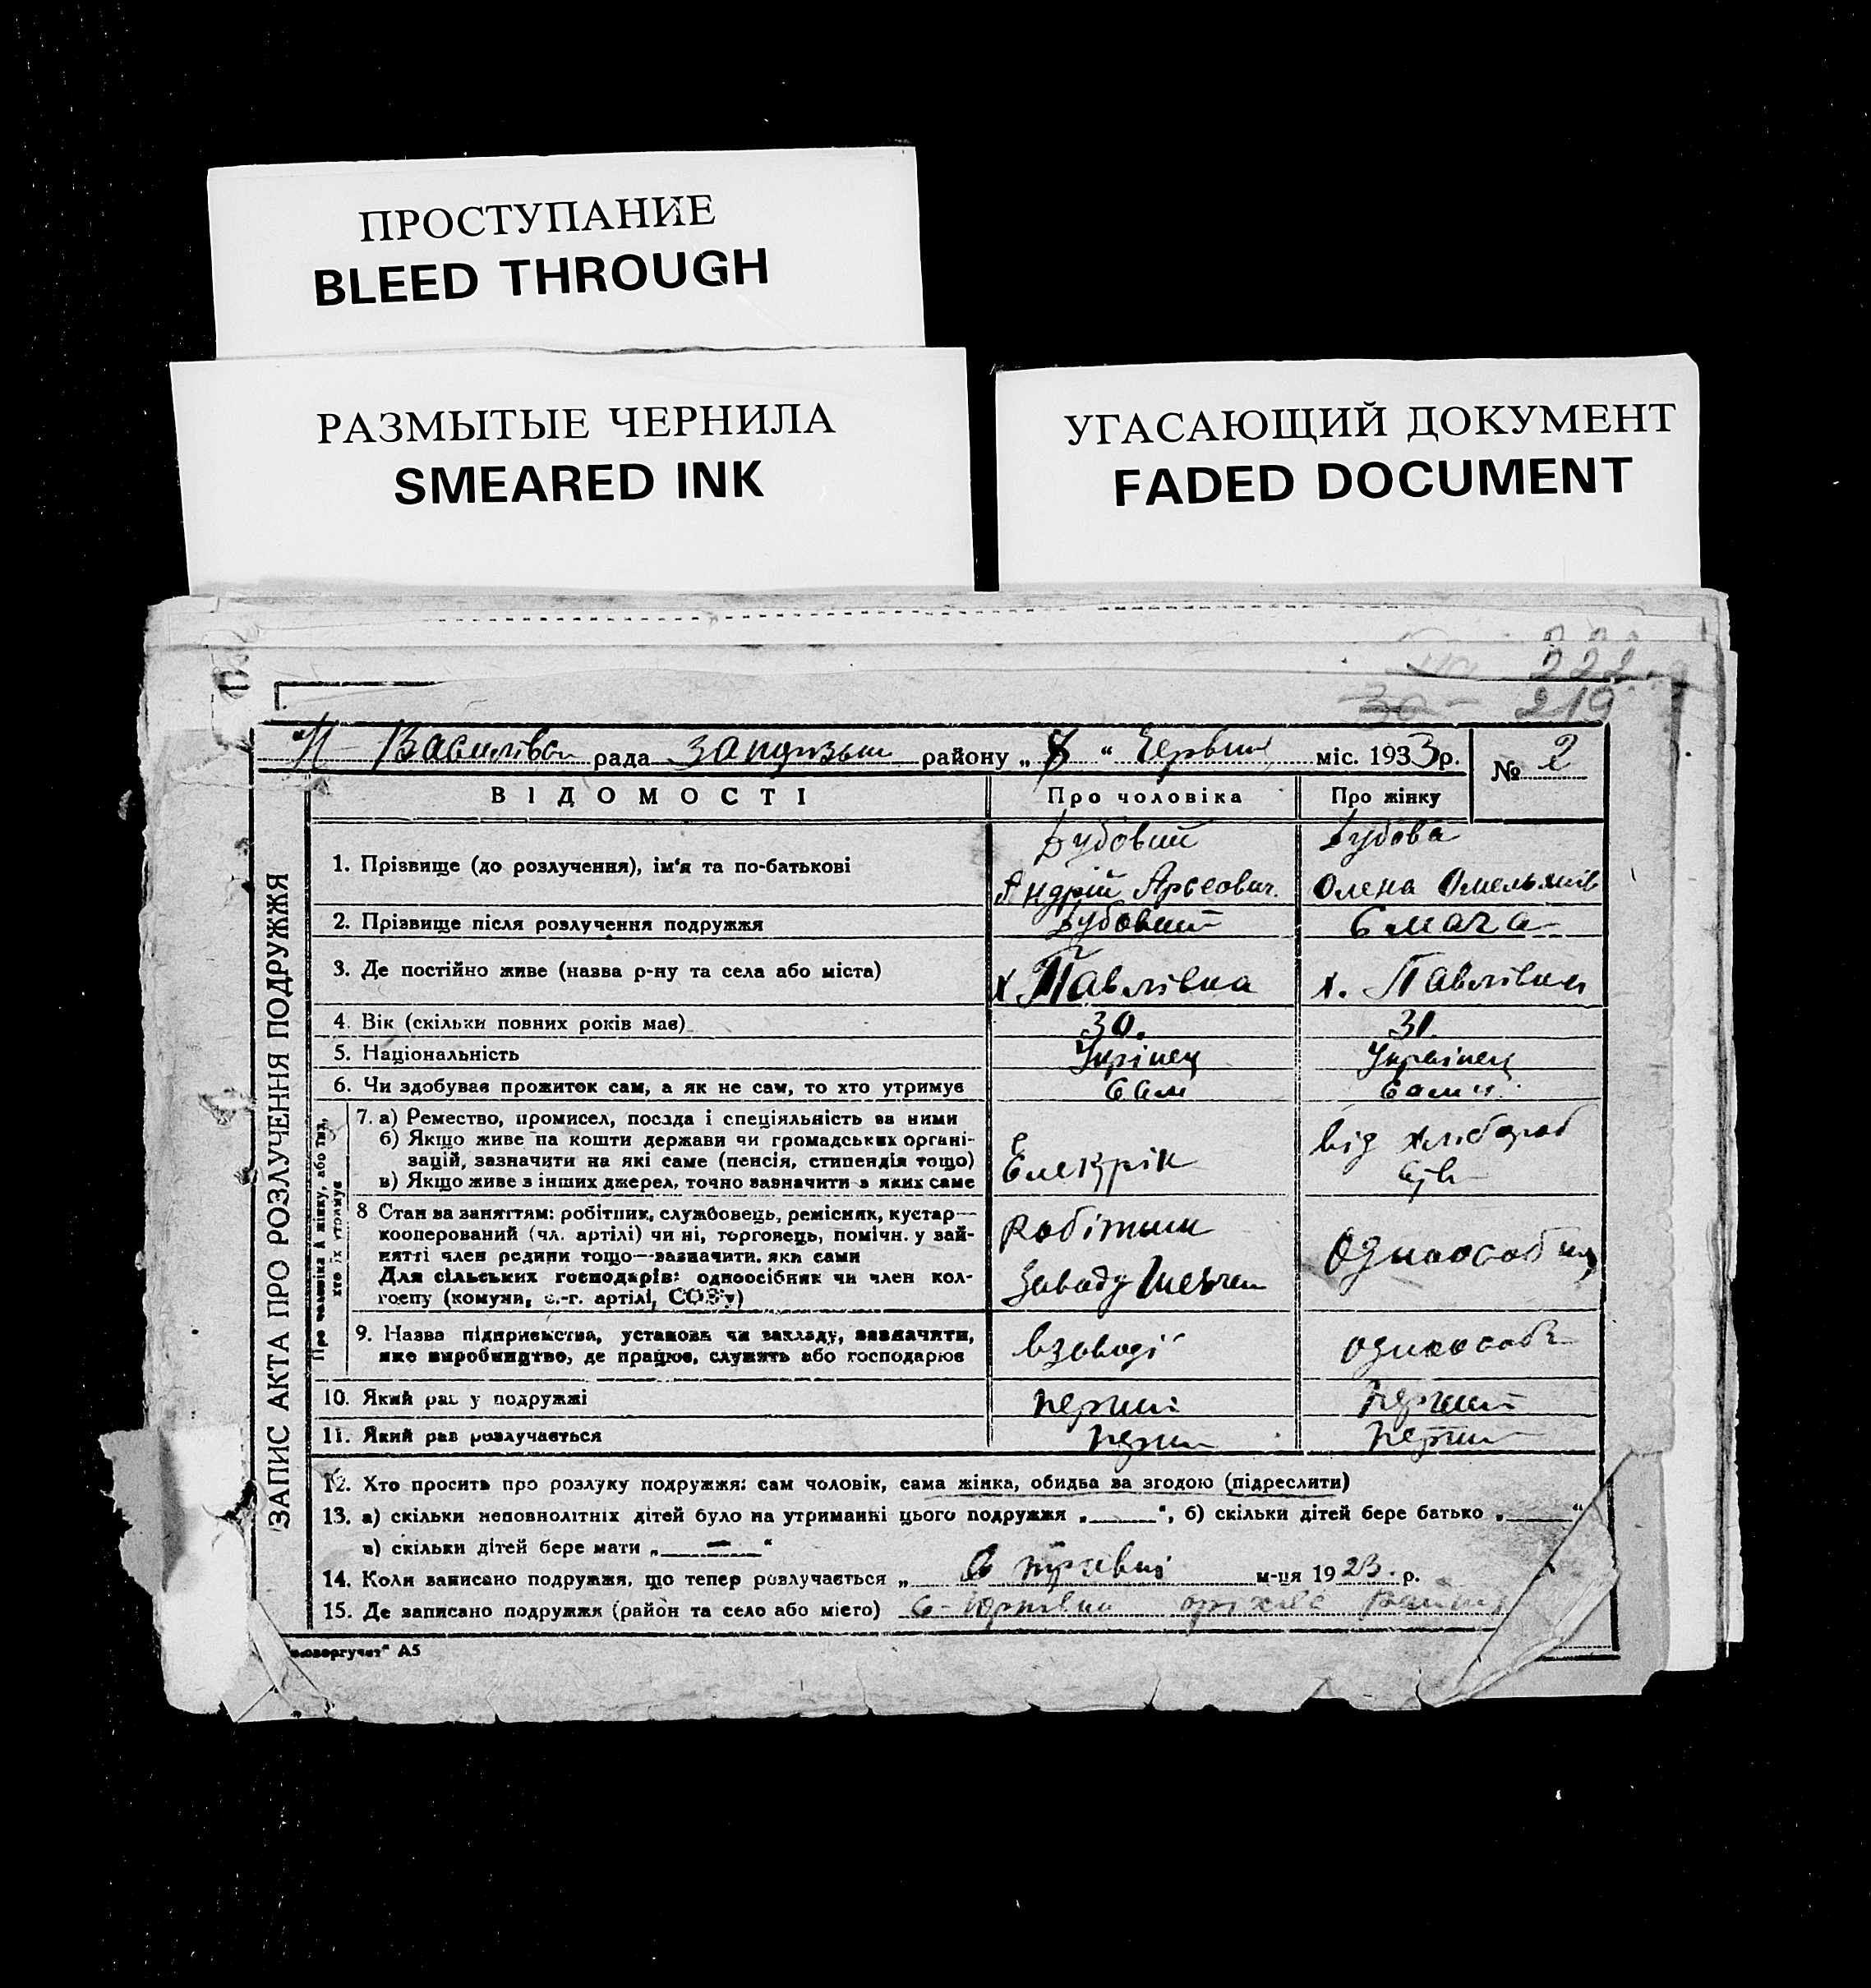 ПРОСТУПАНИЕ
BLEED THROUGH
РАЗМЫТЫЕ ЧЕРНИЛА
SMEARED INK
УГАСАЮЩИЙ ДОКУМЕНТ
FADED DOCUMENT
222
30 - 219
Н-Василівка рада району „ “ Червня міс. 1933р. № 2
ЗАПИС АКТА ПРО РОЗЛУЧЕННЯ ПОДРУЖЖЯ
ВІДОМОСТІ Про чоловіка Про жінку
Дубовий Дубова
1. Прізвище (до розлучення), ім‘я та по-батькові
Андрій Арсеович. Олена Омельянів
2. Прізвище після розлучення подружжя Дубовий Смага
3. Де постійно живе (назва р-ну та села або міста) х Павлівка х. Павлівка
4. Вік (скільки повних років має) 30. 31.
5. Національність Укрінец Українец
6. Чи здобуває прожиток сам, а як не сам, то хто утримує Сам Сама
Про чоловіка й жінку, або тих,
хто їх утримує
7. а) Ремество, промисел, посада і спеціяльність за ними
б) Якщо живе на кошти держави чи громадських органі- від хлібороб
зацій, зазначити на які саме (пенсія, стипендія тощо) Елекрік ств
в) Якщо живе з інших джерел, точно зазначити з яких саме
8 Стан за заняттям: робітник, службовець, ремісник, кустар— Робітник
кооперований (чл. артілі) чи ні, торговець, помічн. у зай-
нятті член родини тощо—зазначити, яки сами Одноособниц
Для сільських господарів: одноосібник чи член кол- Заводу Шевчен
госпу (комуни, с.-г. артілі, СОЗу)
9. Назва підприємства, установи чи закладу, зазначити, взаводі одноособ
яке виробництво, де працює, служить або господарює
10. Який раз у подружжі перший перший
11. Який раз розлучається перши перши
12. Хто просить про розлуку подружжя: сам чоловік, сама жінка, обидва за згодою (підреслити)
13. а) скільки неповнолітніх дітей було на утриманні цього подружжя „ “, б) скільки дітей бере батько „ “
в) скільки дітей бере мати „ — “
14. Коли записано подружжя, що тепер розлучається „ м-ця 1923. р.
15. Де записано подружжя (район та село або місто) с- Юрківка оріхів
А5